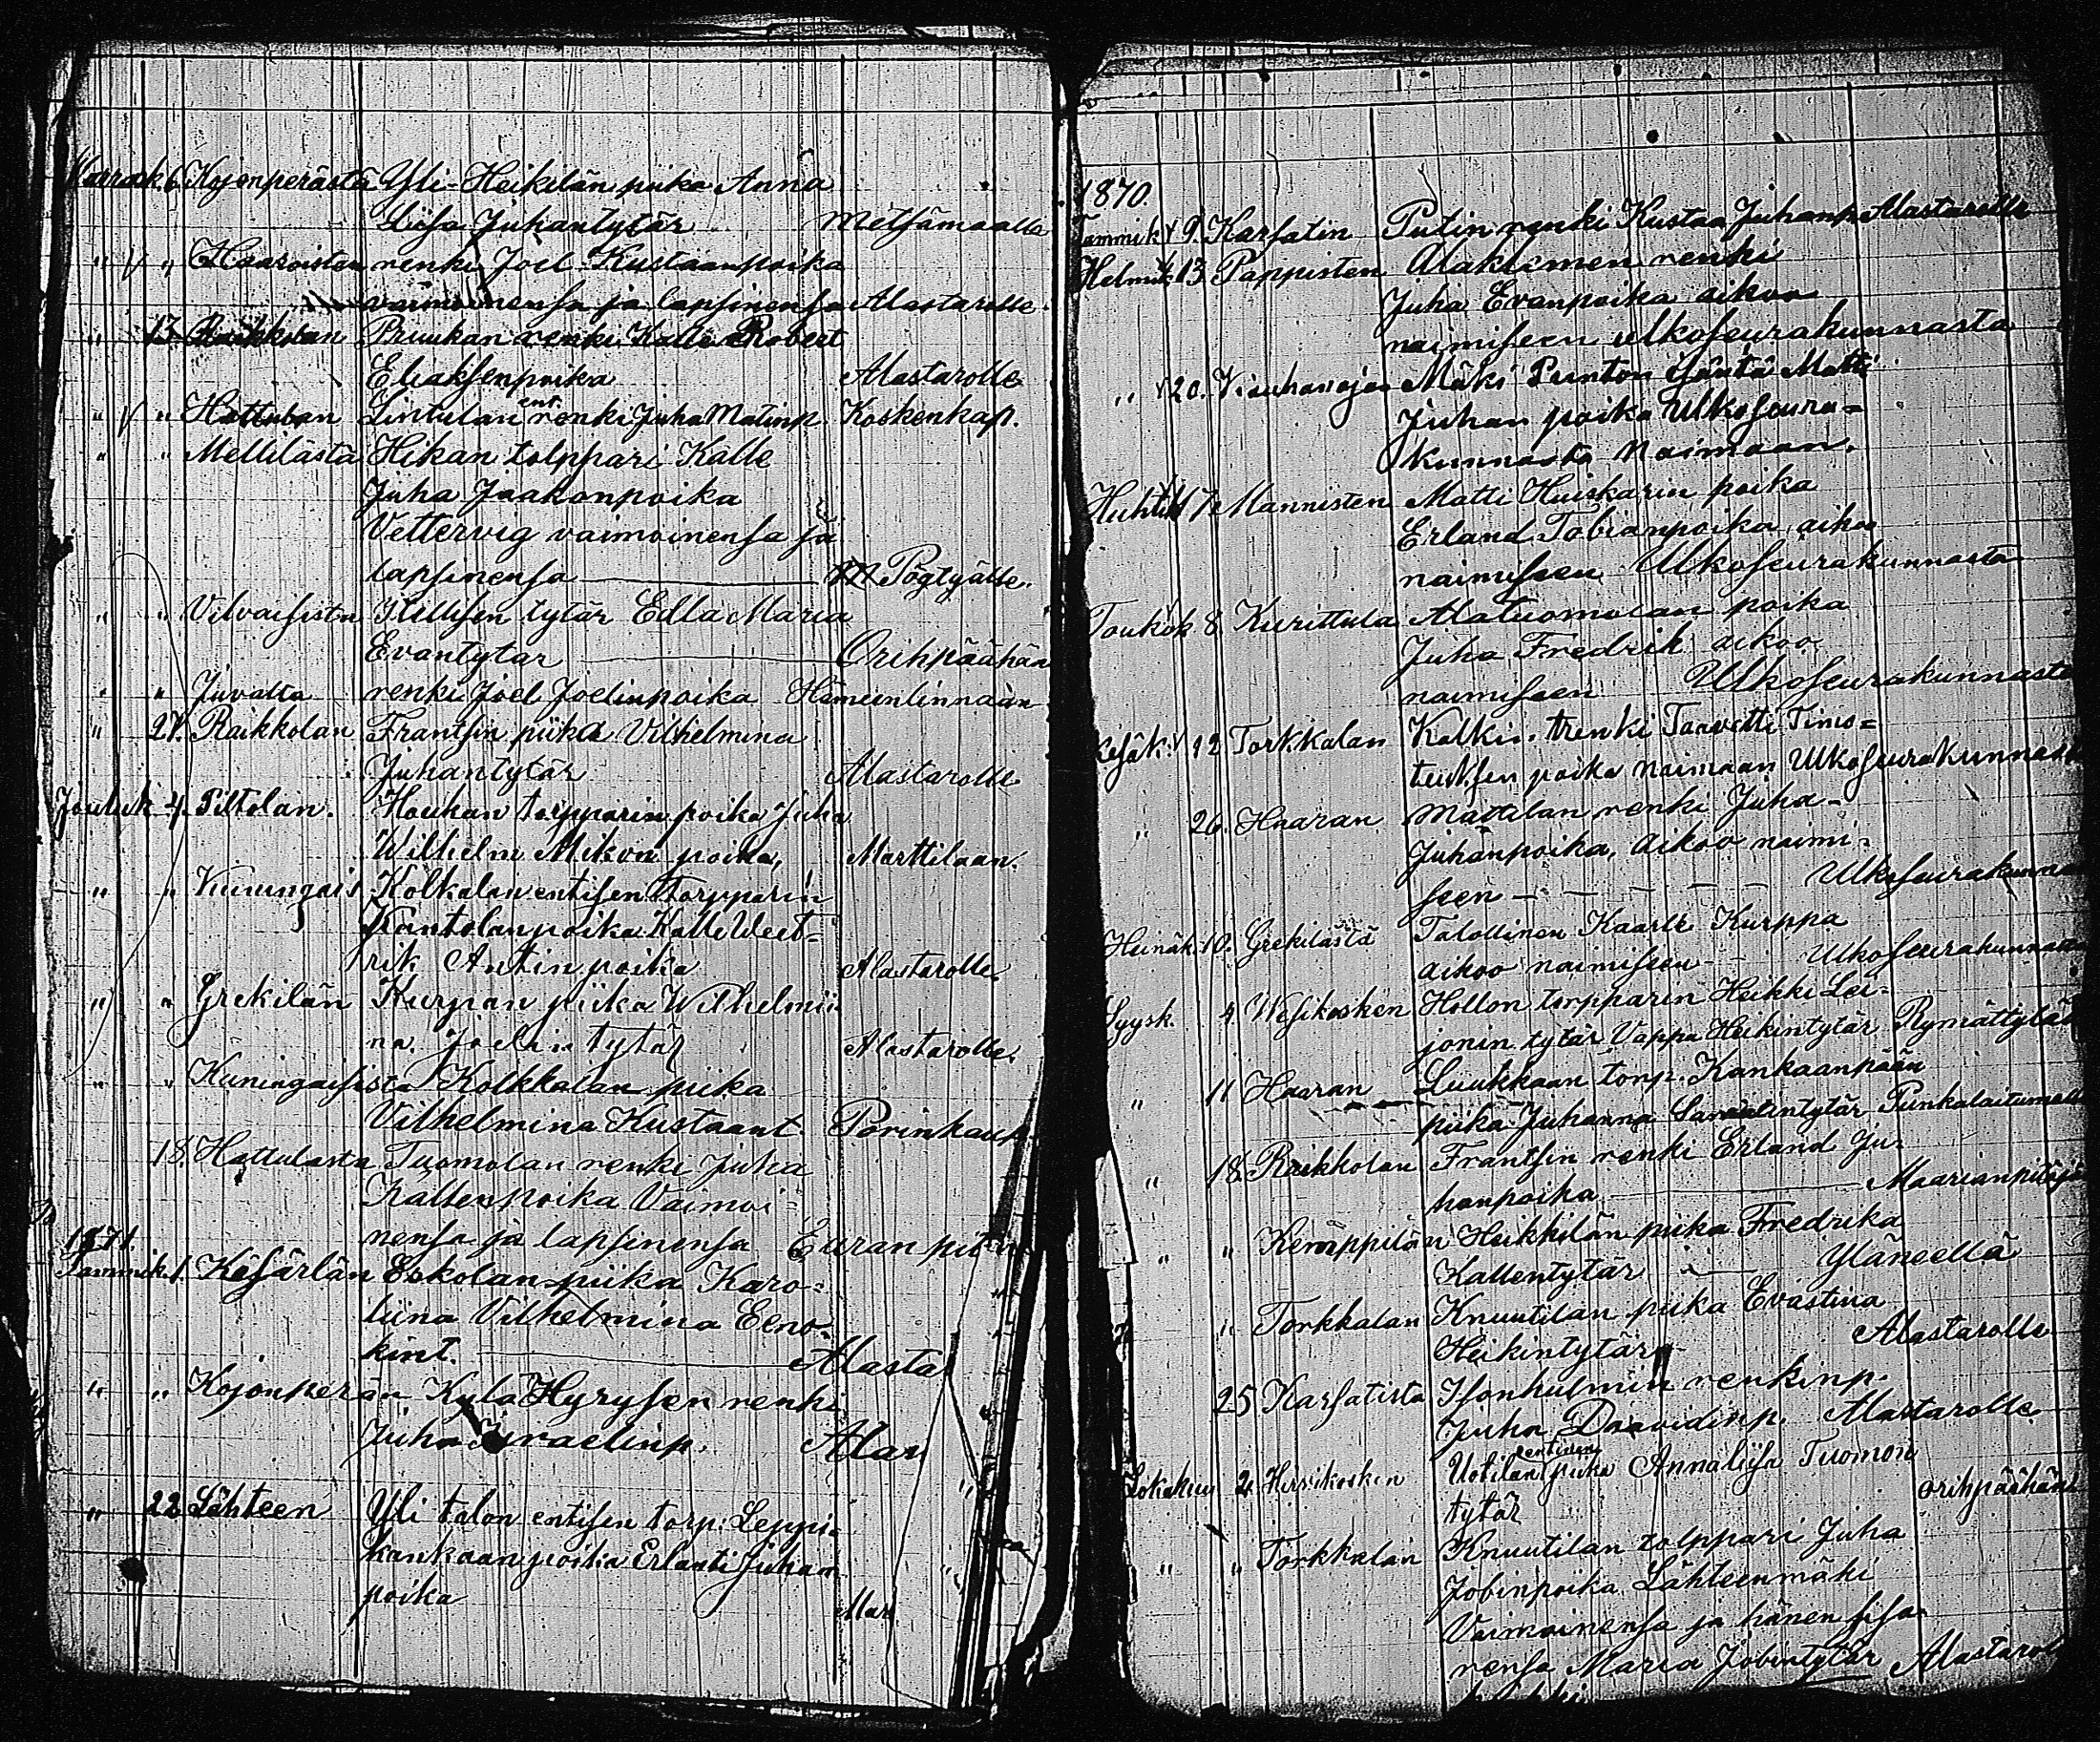 Marrask. 6. Kojonperästä Yli-Heikilän piika Anna
Liisa Juhantytär Metsämaalle
" " Haaroisten renki Joel Kustaanpoika
vaimoinensa ja lapsinensa Alastarolle.
" 13 Raikkolan Pruukan renki Kalle Robert
Eliaksenpoika Alastarolle
" " Hattulan Lintulan ent. renki Juha Matinp. Koskenkap.
" " Mellilästä Hikan tolppari Kalle
Juha Jaakonpoika
Vettervig vaimoinensa ja
lapsinensa — Pögtyälle.
" " Vilvaisista Itellisen tytär Edla Maria
Evantytar — Orihpäähän
" " Juvalta renki Joel Joelinpoika Hämeenlinnaan
" 27. Raikkolan Frantsin piika Vilhelmina
Juhantytär Alastarolle
Jouluk. 4. Piltolan. Houkan torpparin poika Juha
Wilhelm Mikon poika, Marttilaan.
" " Kuningais Kolkalan entisen torpparin
Kantolan poika Kalle Weet=
rik Antin poika Alastarolle.
" " Grekilän Kurpan piika Wilhelmii
na. Joelin tytär Alastarolle.
" " Kuningaisista Kolkkalan piika
Vilhelmina Kustaant. Porinkaup.
18. Hattulasta Tuomolan renki Juha
Kallenpoika Vaimoi=
nensa ja lapsinensa Euran pitä
1871.
Tammik. 1. Käsärlän Eskolan piika Karo=
liina Vilhelmina Eeno
kint. — Alasta
" " Kojonperän Kylä Hyrysen renki
Juha Israelinp. Alas
" 22 Lähteen Yli talon entisen torp. Leppi=
kankaan poika Erlanti Juhan
poika Mar
1870.
Tammik. 9. Karsatin Putin renki Kustaa Juhanp. Alastarolle
Helmik. 13. Pappisten Alaklemen renki
Juha Evanpoika aikoo
naimiseen ulkoseurakunnasta
" 20. Mäki Punton Matti
Juhan poika Ulkoseura=
kunnasta Naimaan.
Huhtik. 17. Mannisten Matti Huiskarin poika
Erland Tobianpoika, aikoo
naimiseen Ulkoseurakunnasta
Toukok. 8. Kurittula Alatuomolan poika
Juha Fredrik aikoo
naimiseen Ulkoseurakunnasta
Kesäk. 12 Torkkalan Kalkin renki Taavetti Timo=
teuksen poika naimaan Ulkoseurakunnast
" 26. Haaran Mattilan renki Juha
Juhanpoika, aikoo naimi=
seen — — — Ulkoseurakunna
Heinäk. 10. Grekilästä Talollinen Kaarle Kurppa
aikoo naimiseen — Ulkoseurakunnasta
Syysk. 4. Wesikosken Hollon torpparin Heikki Lei=
jonin tytär Vappa Heikintytär Rymättylä
" 11 Haaran Luukkaan torp. Kankaanpään
piika Juhanna tytär Punkalaitumelle
" 18. Raikkolan Frantsin renki Erland Ju=
hanpoika — Maarianpitäjä
" " Kemppilän Heikkilän piika Fredrika
Kallentytär — Yläneellä
" Torkkalan Knuutilan piika Evastina
Heikintytär Alastarolle
25 Karsatista Isonhulmin renkinp.
Juha Daavidinp. Alastarolle
Lokakuu 2. Hirsikosken Uotilan entinen piika Annaliisa Tuomon
tytär orihpäähän
" " Torkkalan Knuutilan tolppari Juha
Jobinpoika Lähteenmäki
Vaimoinensa ja hänen sisa
rensa Maria Jobintytär Alastarol